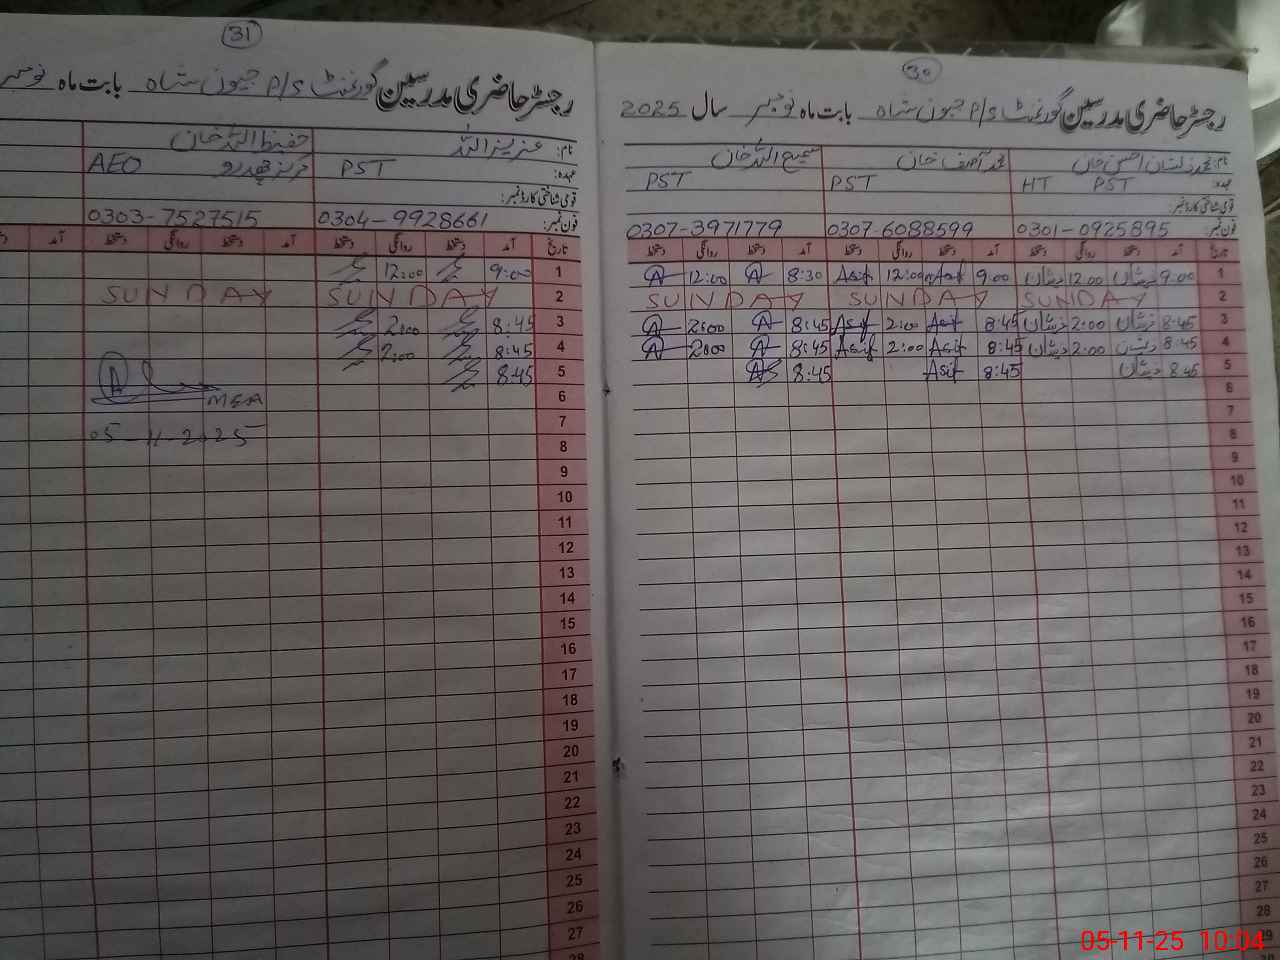 30
رجسٹر حاضری مدرسین گورنمنٹ P/S جیون شاہ بابت ماہ نومبر سال 2025
نام: محمد ذیشان احسن خان محمد آصف خان سمیع اللہ خان
عہدہ: HT PST PST PST
قومی شناختی کارڈ نمبر:
فون نمبر: 0301-0925895 0307-6088599 0307-3971779
تاریخ آمد دستخط روانگی دستخط آمد دستخط روانگی دستخط آمد دستخط روانگی دستخط
1 9:00 ذیشان 12:00 ذیشان 9:00 Asif 12:00 Asif 8:30 A 12:00 A
2 SUNDAY SUNDAY SUNDAY
3 8:45 ذیشان 2:00 ذیشان 8:45 Asif 2:00 Asif 8:45 A 2:00 A
4 8:45 ذیشان 2:00 ذیشان 8:45 Asif 2:00 Asif 8:45 A 2:00 A
5 8:45 ذیشان 8:45 Asif 8:45
6
7
8
9
10
11
12
13
14
15
16
17
18
19
20
21
22
23
24
25
26
27
28
29
31
رجسٹر حاضری مدرسین گورنمنٹ P/S جیون شاہ بابت ماہ نومبر
نام: عزیز اللہ حفیظ اللہ خان
عہدہ: PST مرکز AEO
قومی شناختی کارڈ نمبر:
فون نمبر: 0304-9928661 0303-7527515
تاریخ آمد دستخط روانگی دستخط آمد دستخط روانگی دستخط آمد
1 9:00 12:00
2 SUNDAY SUNDAY
3 8:45 2:00
4 8:45 2:00
5 8:45
6 MEA
7
05-11-2025
8
9
10
11
12
13
14
15
16
17
18
19
20
21
22
23
24
25
26
27
28
05-11-25 10:04